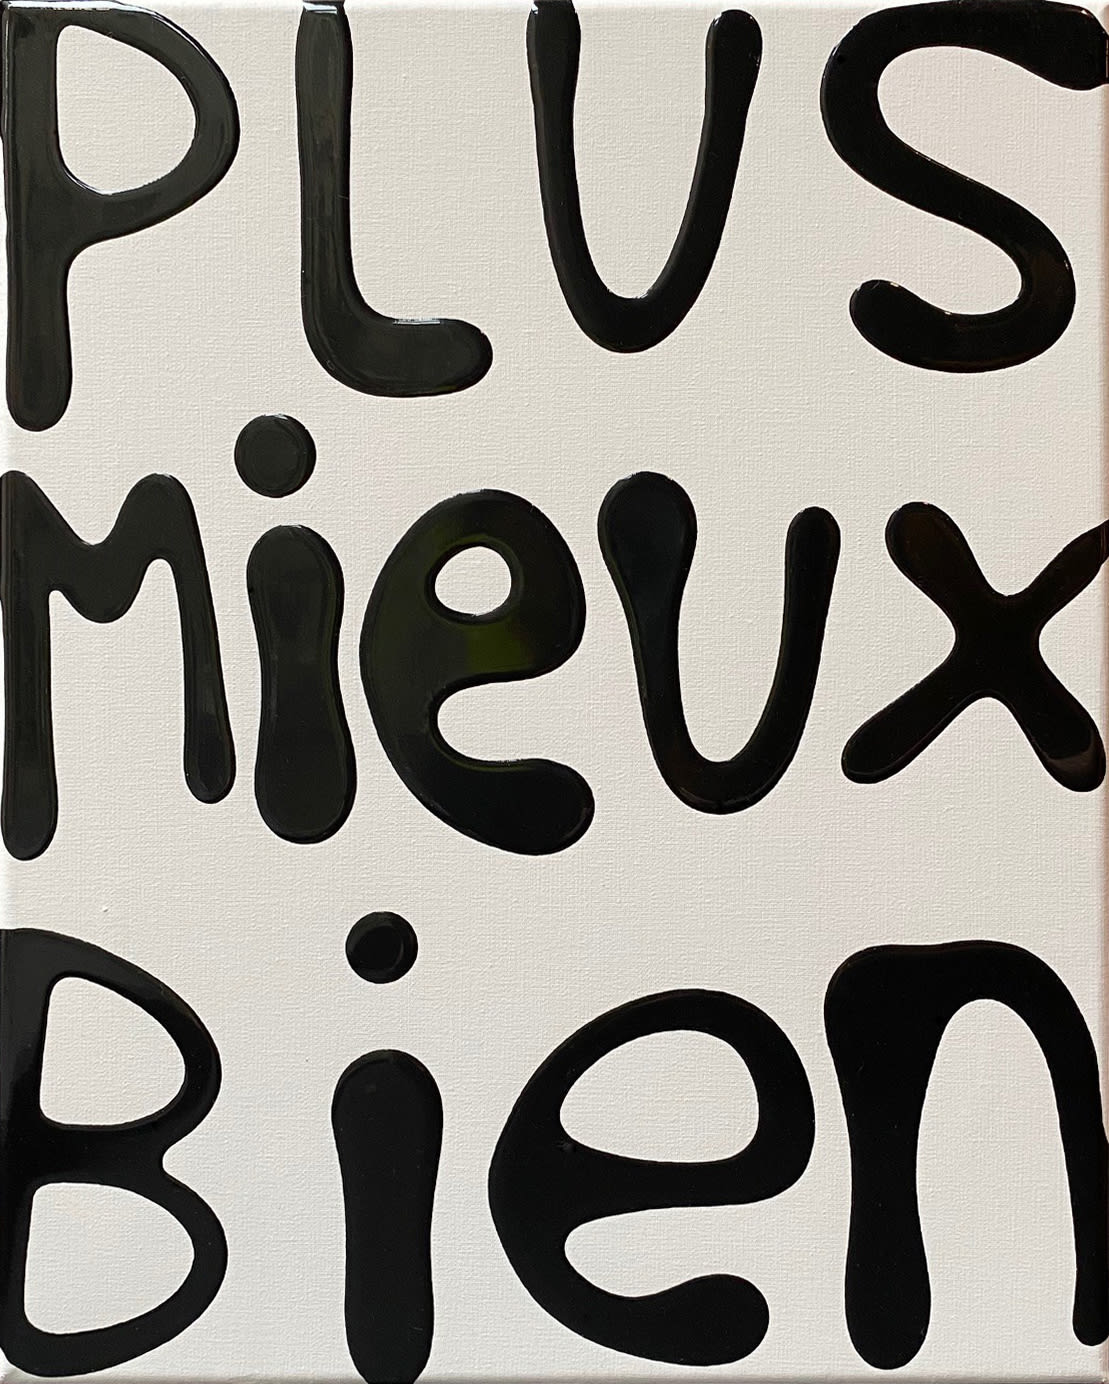 PLUS
Mieux
Bien